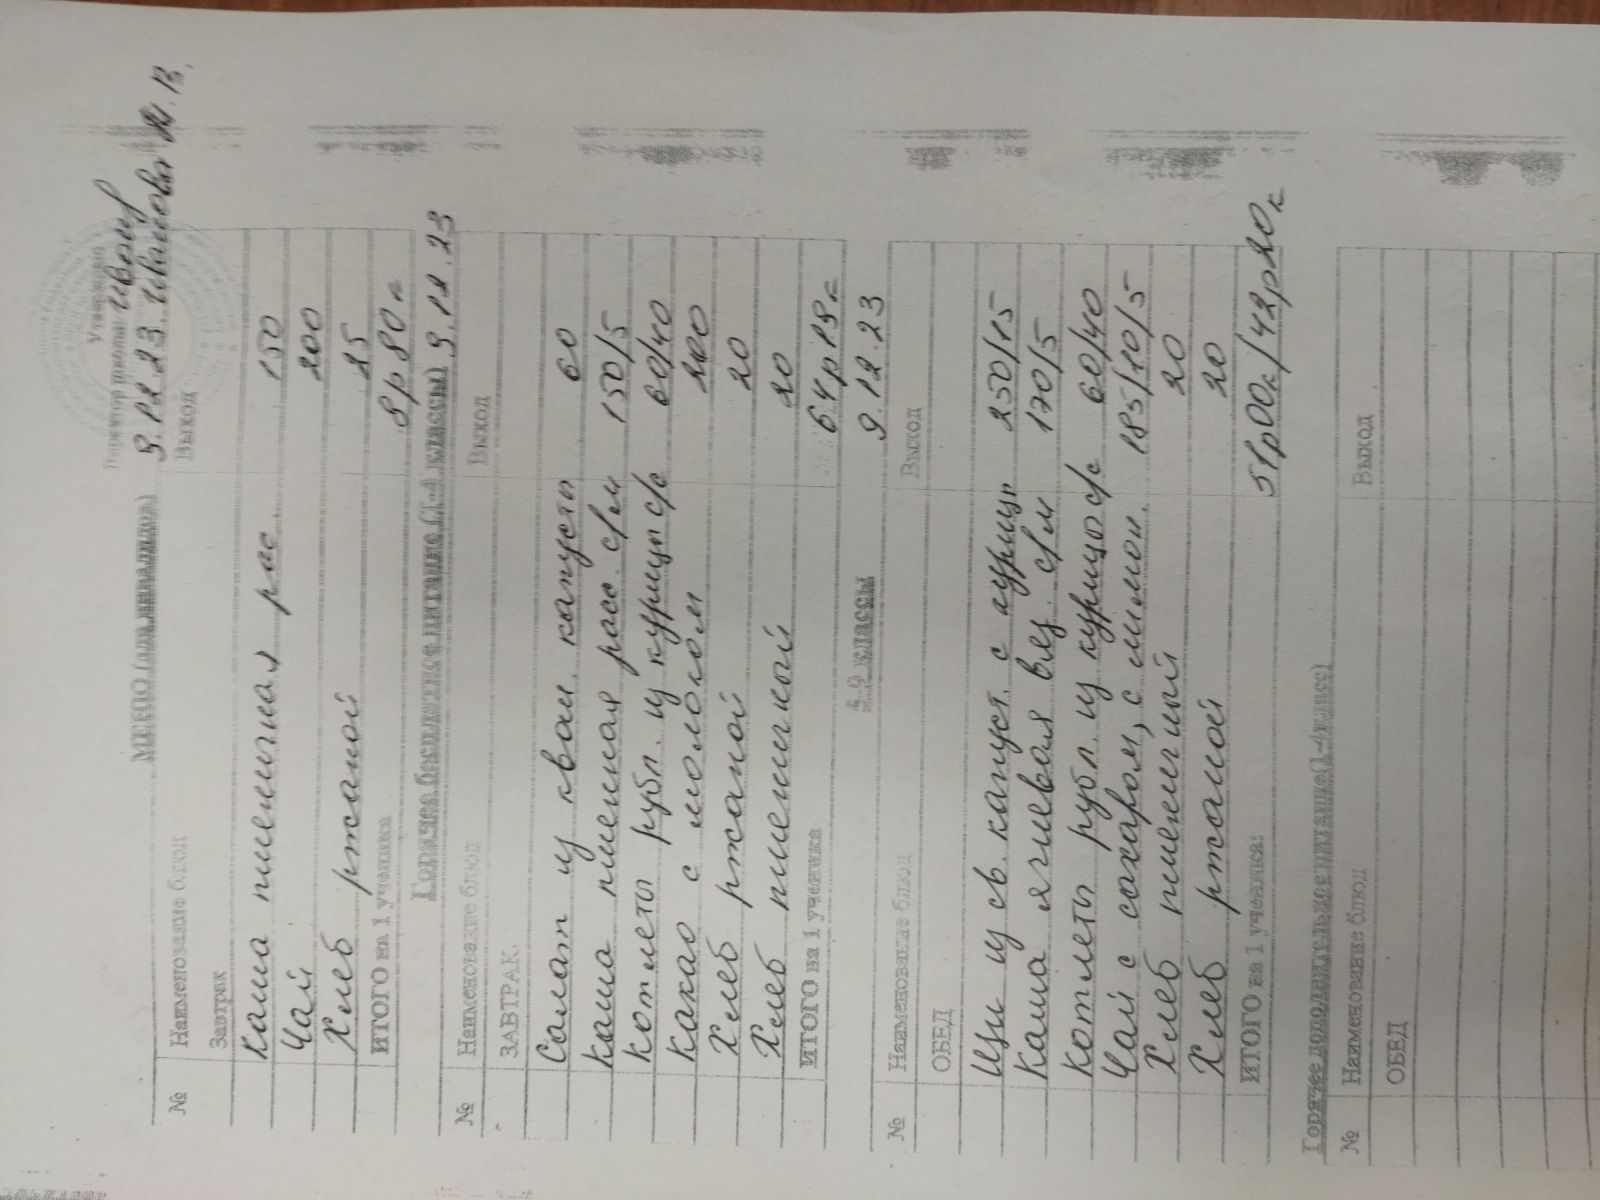 Утверждено
Директор школы:
9.12.23. Иванова И.В.
МЕНЮ (для инвалидов)
№ Наименование блюд Выход
Завтрак
Каша пшеничная рас. 150
Чай 200
Хлеб ржаной 25
ИТОГО на 1 ученика 8р 80к
Горячее бесплатное питание (1-4 классы) 9.12.23
№ Наименование блюд Выход
ЗАВТРАК
Салат из кваш. капусты 60
Каша пшенная расс. с/м 150/5
Котлеты рубл. из куриц с/с 60/40
Какао с молоком 200
Хлеб ржаной 20
Хлеб пшеничный 20
ИТОГО на 1 ученика 64р 19к
5-9 классы 9.12.23
№ Наименование блюд Выход
ОБЕД
Щи из св. капуст. с куриц 250/15
Каша ячневая вяз. с/м 170/5
Котлеты рубл. из куриц с/с 60/40
Чай с сахаром, с лимон. 185/10/5
Хлеб пшеничный 20
Хлеб ржаной 20
ИТОГО на 1 ученика: 51р00к/42р20к
Горячее дополнительное питание(1-4класс)
№ Наименование блюд Выход
ОБЕД